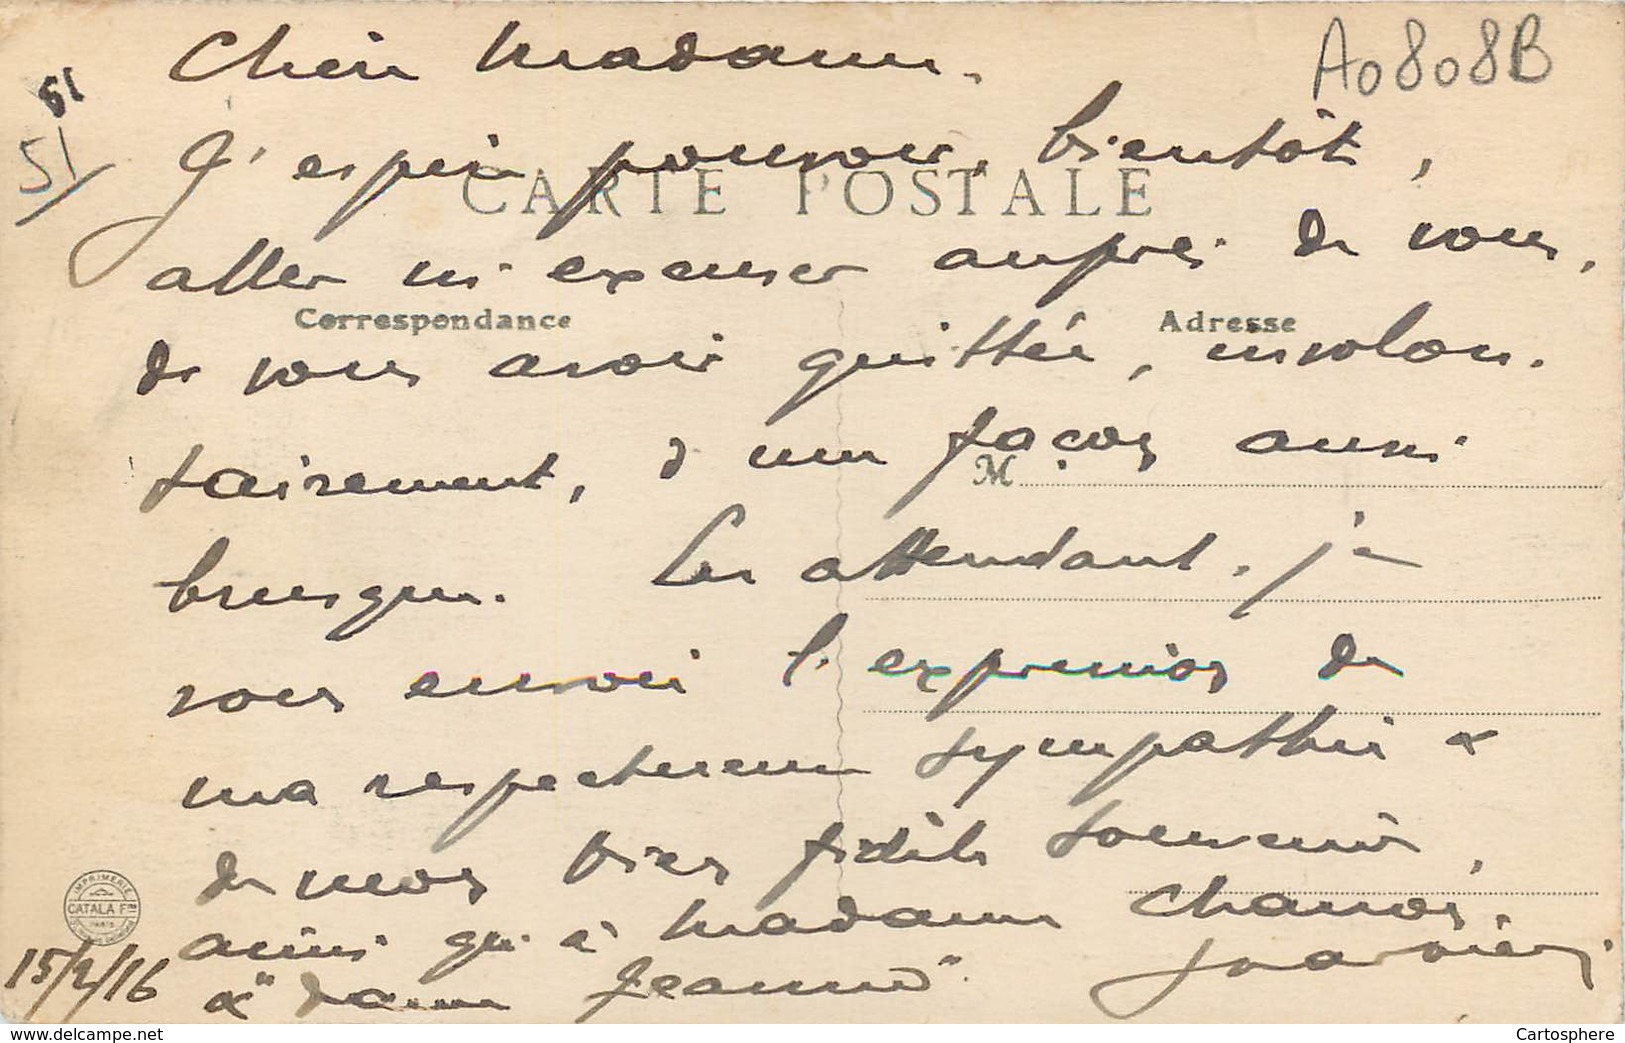 A0808B
Chère Madame.
51
51
J'espère pouvoir, bientôt,
CARTE POSTALE
aller m'excuser auprès de vous,
Correspondance
Adresse
de vous avoir quittée, involon-
tairement, d'une façon aussi
M
brusque. En attendant, je
vous envoie l'expression de
ma respectueuse sympathie &
de mon bien fidèle souvenir,
ainsi qu'à Madame
& "dame Jeanne".
IMPRIMERIE
CATALA Fres
PARIS
15/2/16
www.delcampe.net
Cartosphere